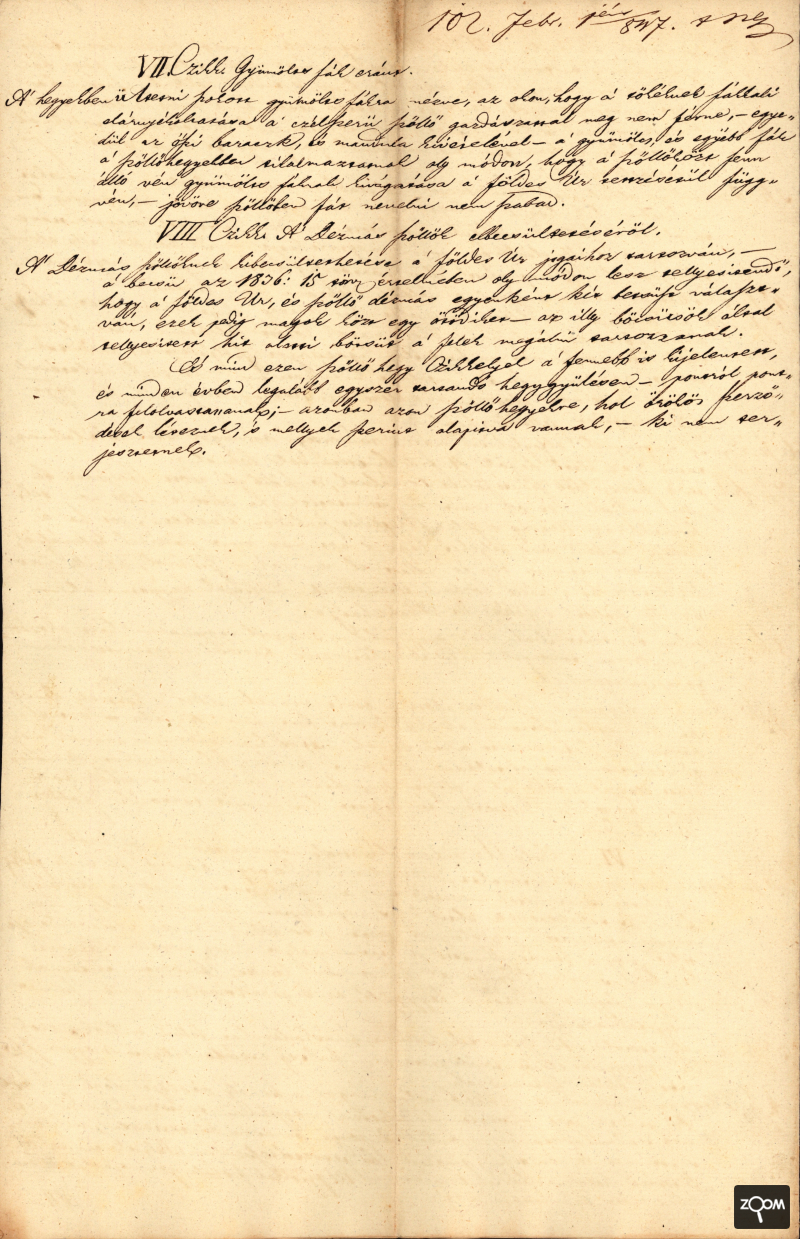 102. Febr. 1jén 847.
VII. Czikk Gyümölcs fák eránt.
A' hegyekben ültetni szokott gyümölcs fákra nézve, az okon, hogy a' tőkéknek fáktali
elárnyékoltatása a' czélszerű szőllő gazdászattal meg nem férne, – egye„
dül az őszi baraczk, és mandula kivételével – a' gyümölcs, és egyébb fák
a' szőllőhegyekben tilalmaztatnak oly módon, hogy a' szőllőkött fenn
álló vén gyümölcs fáknak kivágatása a' földes Úr tetszésétül függ„
vén, – jövőre szőllőben fát nevelni nem szabad.
VIII Czikk. A' Dézmás szőllők elbecsültetéséről.
A' Dézmás szőllőknek kibecsültethetése a' földes Úr jogaihoz tartozván, –
a' becsü az 1836: 15 törv. értelmében oly módon lesz tellyesitendő,
hogy a' földes Úr, és szőllő dézmás egyenként két becsüst választ„
ván, ezek pedig magok közt egy ötödiket – az illy böcsüsök által
tellyesitett hit alatti böcsüt a' felek megálni tartozzanak.
A' mint ezen szőllő hegy Czikkelyek a' fennebb is kijelentett,
és minden évben legalább egyszer tartandó hegygyülésen – pontról pont„
ra felolvastatnak; – azonban azon szőllőhegyekre, hol örökös szerző„
dések léteznek, és mellyek szerint alapitva vannak, – ki nem ter„
jesztetnek.
ZOOM